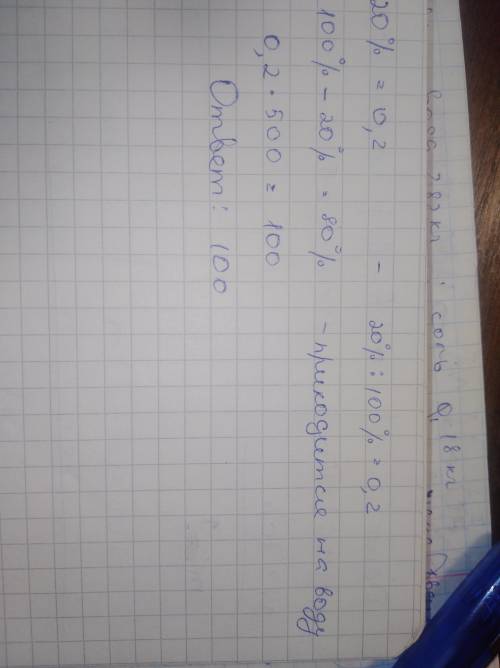 соль 0,18 кг
20% = 0,2 - 20% : 100% = 0,2
100% - 20% = 80% - приходится на воду
0,2 · 500 = 100
Ответ: 100